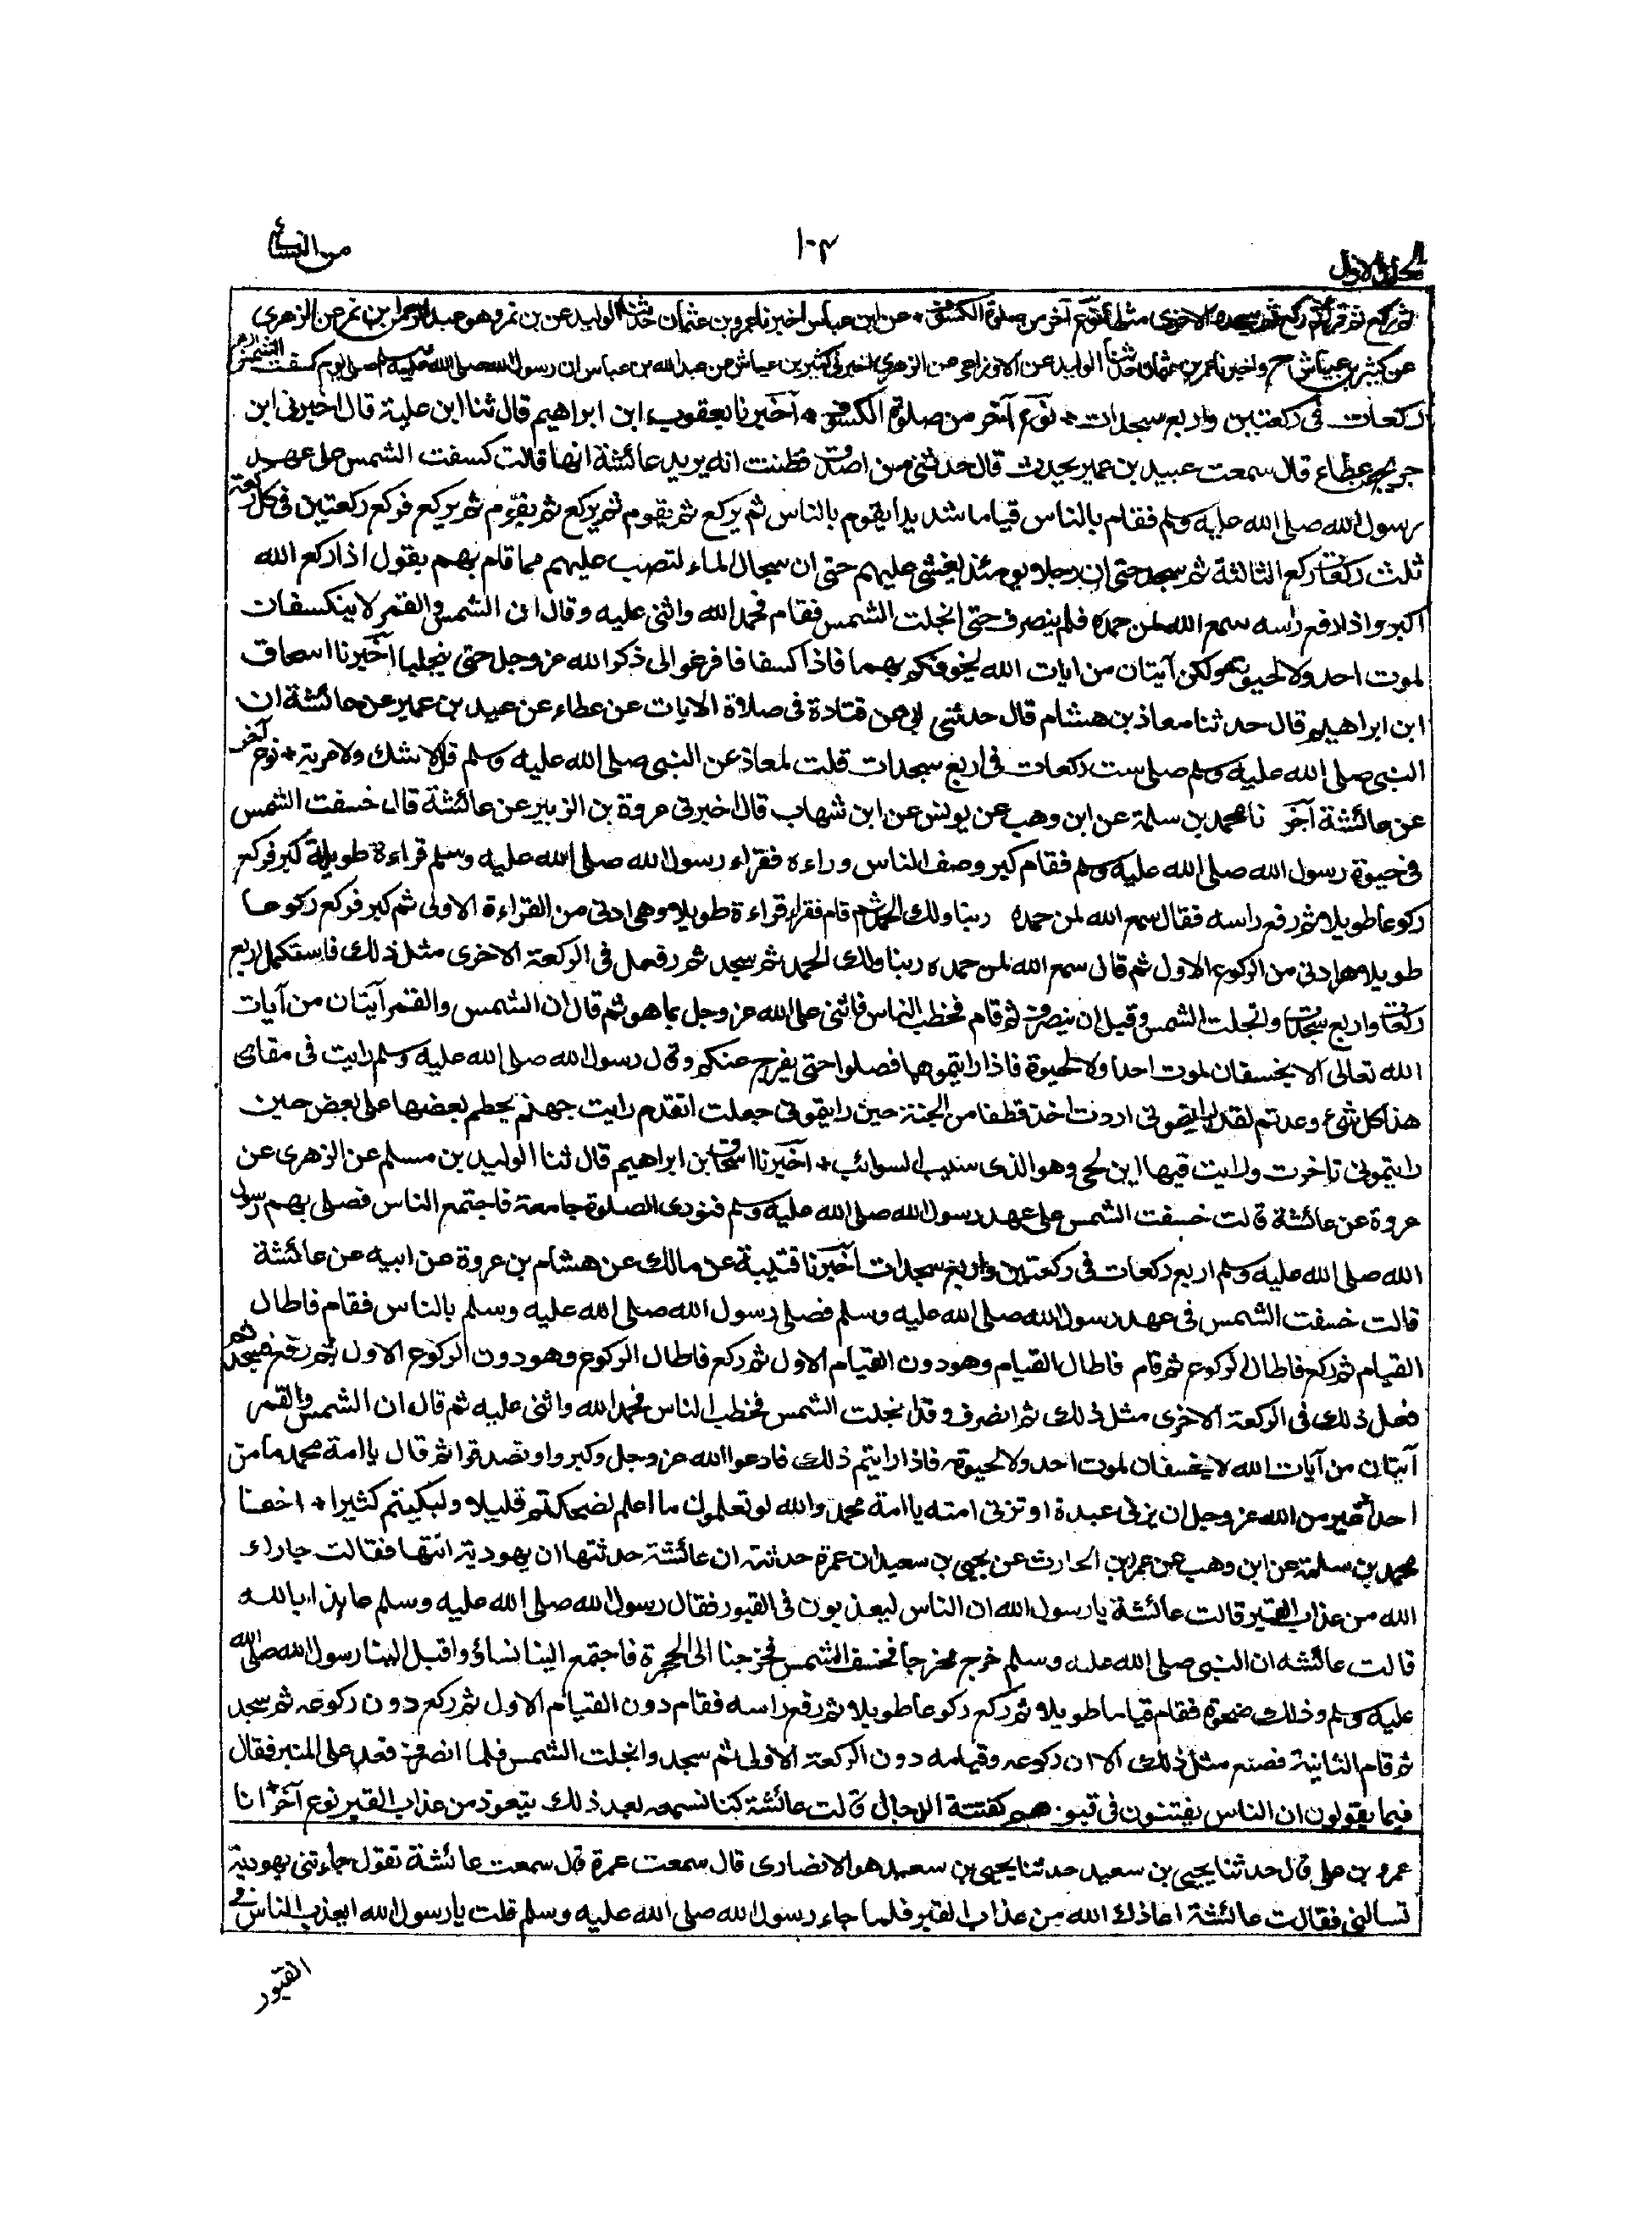 الجلد الاول
١٠٣
من النسائ
ثم ركع ثم قرا ثم ركع ثم سجد والاخرى مثلها نوع آخر من صلوة الكسوف عن ابن عباس اخبرنا عمرو بن عثمان حدثنا الوليد عن بن نمر وهو عبد الرحمن بن نمر عن الزهرى
عن كثير بن عباس ح واخبرنا عمرو بن عثمان حدثنا الوليد عن الاوزاعى عن الزهرى اخبرنى كثير بن عباس عن عبد الله بن عباس ان رسول الله صلى الله عليه وسلم صلى يوم كسفت الشمس اربع
ركعات فى ركعتين واربع سجدات * نوع آخر من صلوة الكسوف * آخبرنا يعقوب ابن ابراهيم قال ثنا ابن علية قال اخبرنى ابن
جريج عن عطاء قال سمعت عبيد بن عمير يحدث قال حدثنى من اصدق فظننت انه يريد عائشة انها قالت كسفت الشمس على عهد
رسول الله صلى الله عليه وسلم فقام بالناس قياما شديدا يقوم بالناس ثم يركع ثم يقوم ثم يركع ثم يقوم ثم يركع فركع ركعتين فى كل ركعة
ثلث ركعات ركع الثالثة ثم سجد حتى ان رجلا يومئذ يغشى عليهم حتى ان سجال الماء لتصب عليهم مما قام بهم يقول اذا ركع الله
اكبر واذا رفع راسه سمع الله لمن حمده فلم ينصرف حتى انجلت الشمس فقام فحمد الله واثنى عليه وقال ان الشمس والقمر لا ينكسفان
لموت احد ولا لحيوته ولكن آيتان من ايات الله يخوفكم بهما فاذا كسفا فافرغوا الى ذكر الله عز وجل حتى ينجليا آخبرنا اسحاق
ابن ابراهيم قال حدثنا معاذ بن هشام قال حدثنى ابى عن قتادة فى صلاة الايات عن عطاء عن عبيد بن عمير عن عائشة ان
النبى صلى الله عليه وسلم صلى ست ركعات فى اربع سجدات قلت لمعاذ عن النبى صلى الله عليه وسلم قال لا شك ولا مرية * نوع آخر
عن عائشة آخر نا محمد بن سلمة عن ابن وهب عن يونس عن ابن شهاب قال اخبرنى عروة بن الزبير عن عائشة قال خسفت الشمس
فى حيوة رسول الله صلى الله عليه وسلم فقام كبر وصف الناس وراءه فقراء رسول الله صلى الله عليه وسلم قراءة طويلة كبر فركع
ركوعا طويلا ثم رفع راسه فقال سمع الله لمن حمده ربنا ولك الحمد ثم قام فقراء قراءة طويلا وهى ادنى من القراءة الاولى ثم كبر فركع ركوعا
طويلا هو ادنى من الركوع الاول ثم قال سمع الله لمن حمده ربنا ولك الحمد ثم سجد ثم فعل فى الركعة الاخرى مثل ذلك فاستكمل اربع
ركعات واربع سجدات وانجلت الشمس وقبل ان ينصرف ثم قام فخطب الناس فاثنى على الله عز وجل بما هو ثم قال ان الشمس والقمر آيتان من آيات
الله تعالى لا يخسفان لموت احد ولا لحيوة فاذا رايتموهما فصلوا حتى يفرج عنكم وقال رسول الله صلى الله عليه وسلم رايت فى مقامى
هذا كل شئ وعدتم لقد رايتمونى اردت اخذ قطفا من الجنة حين رايتمونى جعلت اتقدم رايت جهنم يحطم بعضها على بعض حين
رايتمونى تاخرت ورايت فيها ابن لحى وهو الذى سيب السوائب * آخبرنا اسحاق بن ابراهيم قال ثنا الوليد بن مسلم عن الزهرى عن
عروة عن عائشة قالت خسفت الشمس على عهد رسول الله صلى الله عليه وسلم فنودى الصلوة جامعة فاجتمع الناس فصلى بهم رسول
الله صلى الله عليه وسلم اربع ركعات فى ركعتين واربع سجدات آخبرنا قتيبة عن مالك عن هشام بن عروة عن ابيه عن عائشة
قالت خسفت الشمس فى عهد رسول الله صلى الله عليه وسلم فصلى رسول الله صلى الله عليه وسلم بالناس فقام فاطال
القيام ثم ركع فاطال الركوع ثم قام فاطال القيام وهو دون القيام الاول ثم ركع فاطال الركوع وهو دون الركوع الاول ثم رفع فسجد ثم
فعل ذلك فى الركعة الاخرى مثل ذلك ثم انصرف وقد انجلت الشمس فخطب الناس فحمد الله واثنى عليه ثم قال ان الشمس والقمر
آيتان من آيات الله لا يخسفان لموت احد ولا لحيوته فاذا رايتم ذلك فادعوا الله عز وجل وكبروا وتصدقوا ثم قال يا امة محمد ما من
احد اغير من الله عز وجل ان يزنى عبدة او تزنى امته يا امة محمد والله لو تعلمون ما اعلم لضحكتم قليلا ولبكيتم كثيرا * اخبرنا
محمد بن سلمة عن ابن وهب عن عمرو بن الحارث عن يحيى بن سعيد ان عمرة حدثته ان عائشة حدثتها ان يهودية اتتها فقالت جاراك
الله من عذاب القبر قالت عائشة يا رسول الله ان الناس ليعذبون فى القبور فقال رسول الله صلى الله عليه وسلم عايذا بالله
قالت عائشه ان النبى صلى الله عليه وسلم خرج مخرجا فخسف الشمس فخرجنا الى الحجرة فاجتمع الينا نساؤ واقبل الينا رسول الله صلى الله
عليه وسلم وذلك ضحوة فقام قياما طويلا ثم ركع ركوعا طويلا ثم رفع راسه فقام دون القيام الاول ثم ركع دون ركوعه ثم سجد
ثم قام الثانية فصنع مثل ذلك الا ان ركوعه وقيامه دون الركعة الاولى ثم سجد وانجلت الشمس فلما انصرف قعد على المنبر فقال
فيما يقولون ان الناس يفتنون فى قبورهم كفتنة الدجال قالت عائشة كنا نسمعه بعد ذلك يتعوذ من عذاب القبر نوع آخر * انا
عمرو بن على قال حدثنا يحيى بن سعيد حدثنا يحيى بن سعيد هو الانصارى قال سمعت عمرة قال سمعت عائشة تقول جاءتنى يهودية
تسالنى فقالت عائشة اعاذك الله من عذاب القبر فلما جاء رسول الله صلى الله عليه وسلم قلت يا رسول الله ايعذب الناس فى
القبور